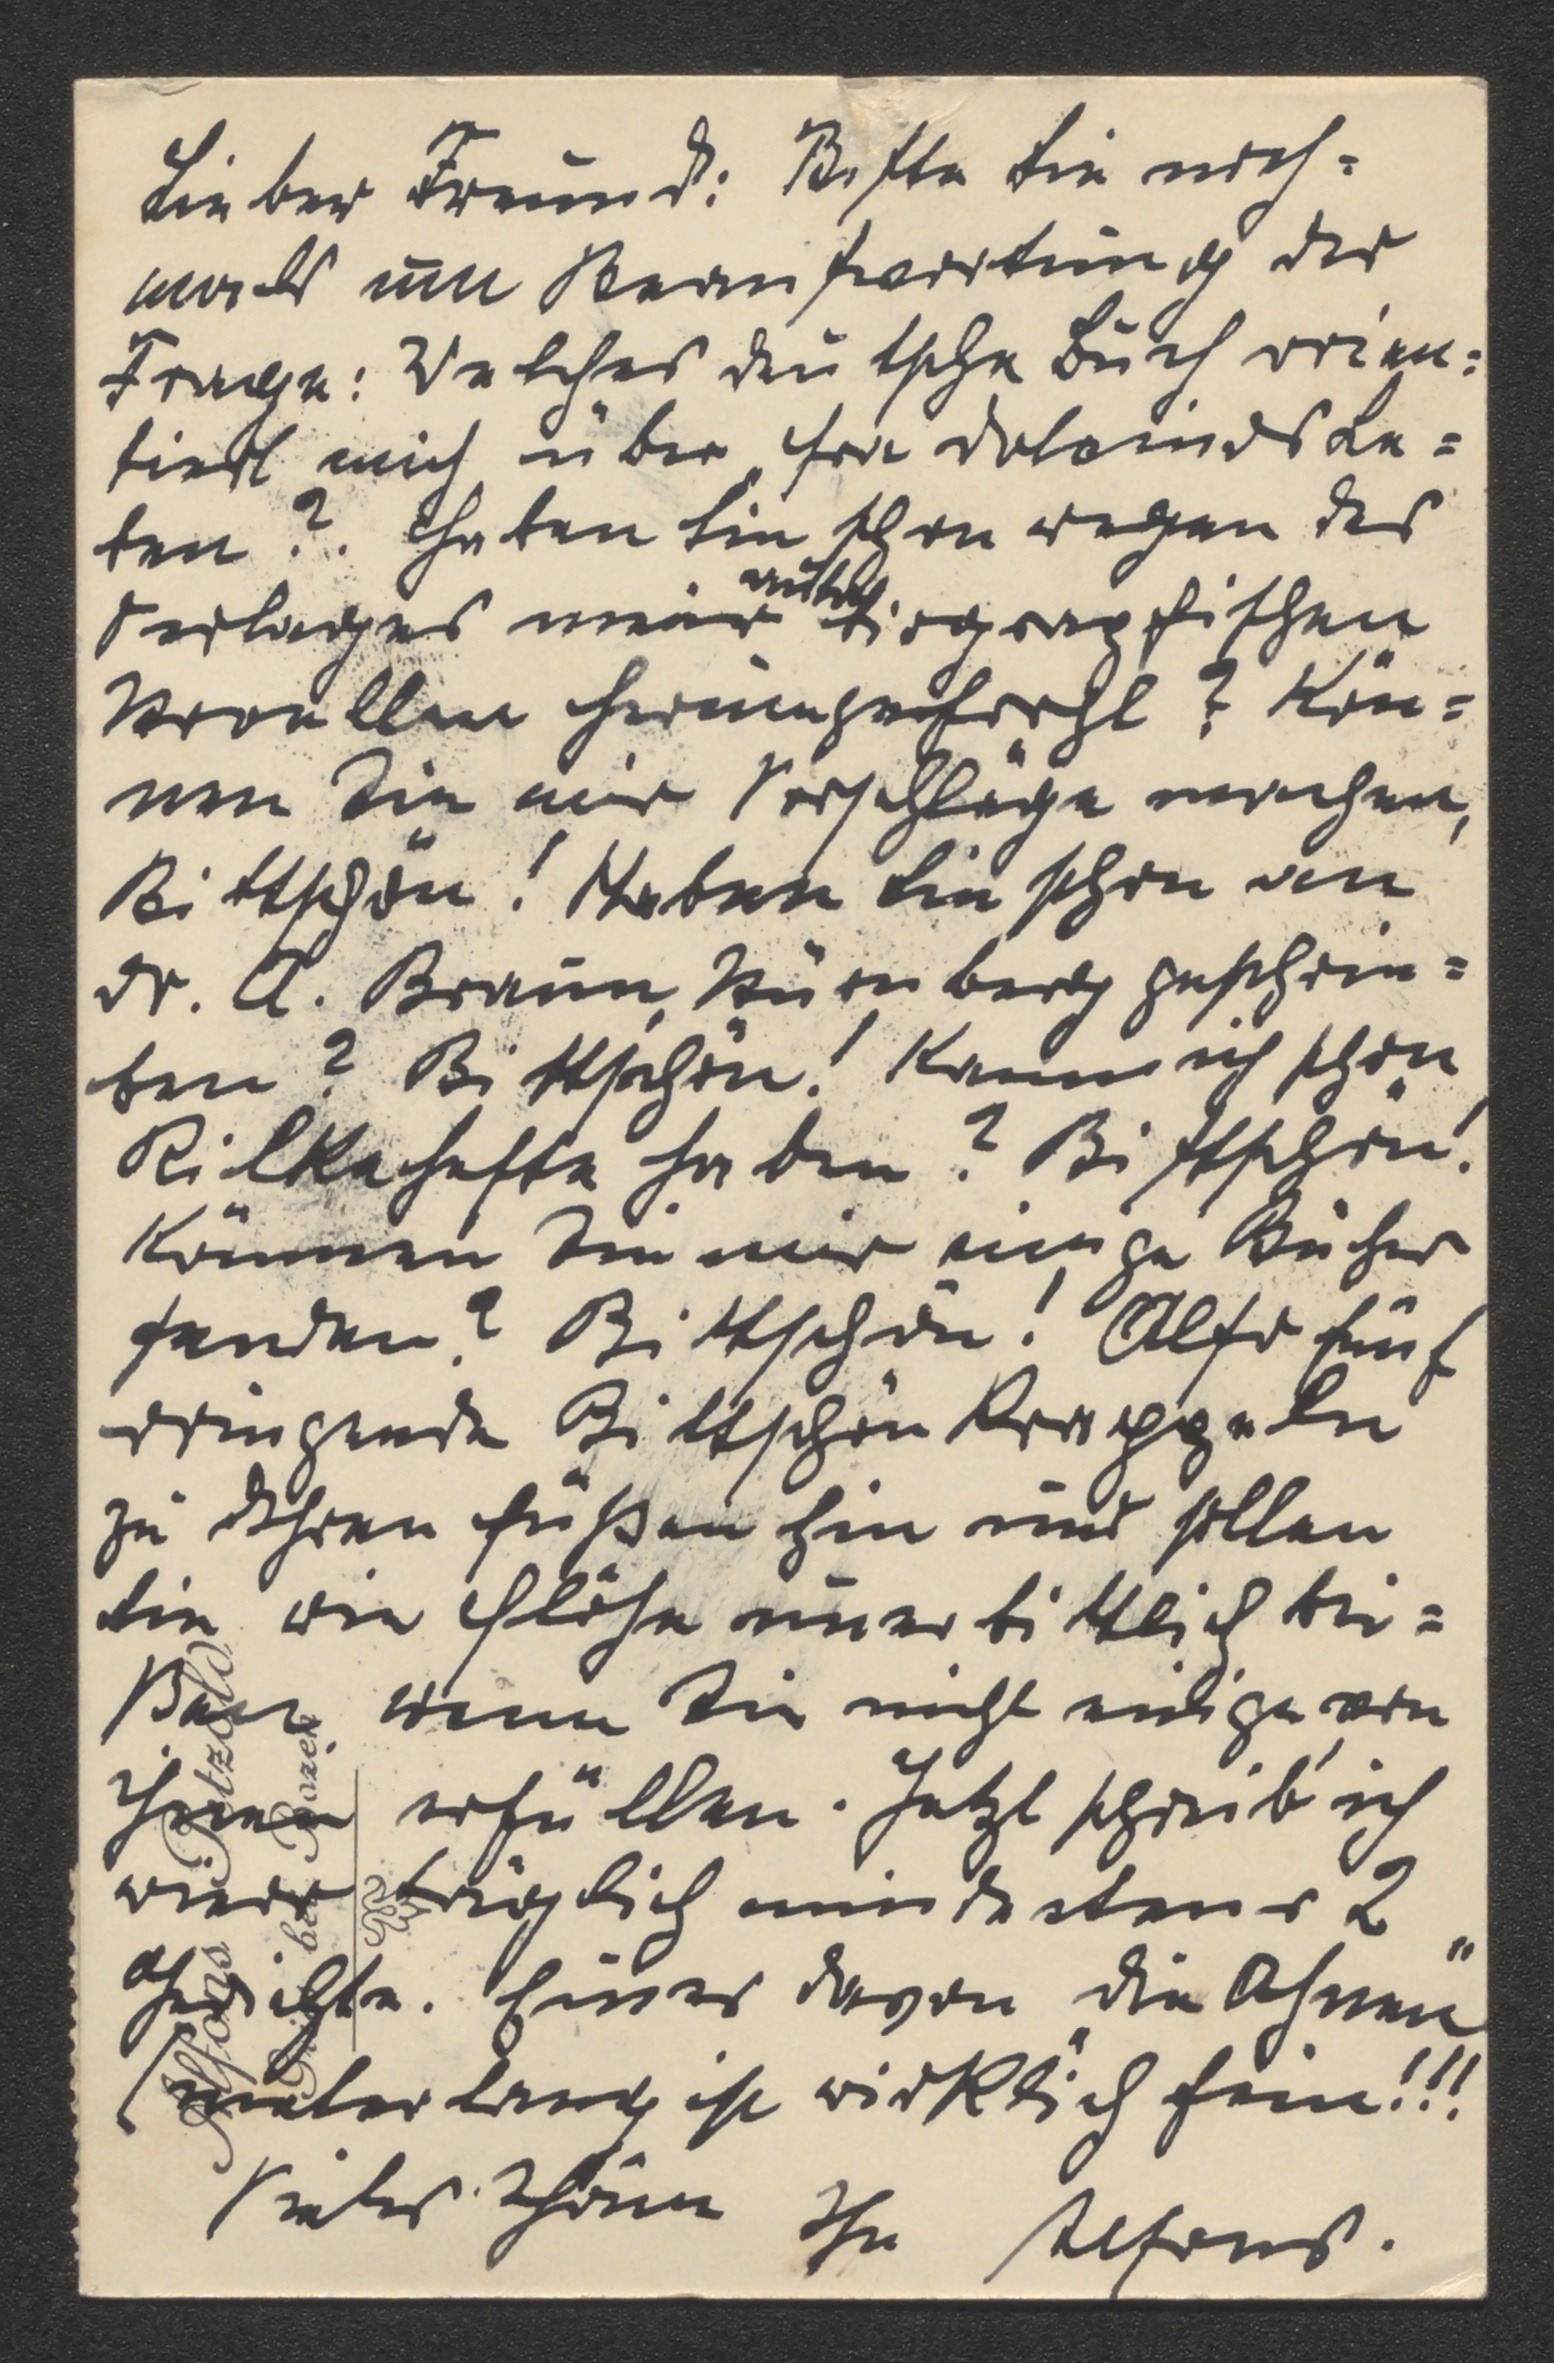 Lieber Freund: Bitte Sie noch=
mals um Beantwortung der
Frage: Welches deutsche Buch orien=
tiert mich über „fra Dolcinos Le=
ben“?. Haben Sie schon wegen des
Verlages meiner auto
biographischen
Novellen herumgehorcht? Kön=
nen Sie mir Vorschläge machen,
Bittschön! Haben Sie schon an
Dr. A. Braun, Nürnberg geschrie=
ben? Bittschön! Kann ich schon
Rilkehefte haben? Bittschön!
Können Sie mir einige Bücher
senden? Bittschön! Also fünf
dringende Bittschön krappeln
zu Ihren Füßen hin und sollen
Sie wie Flöhe unerbittlich bei=
ßen, wenn Sie nicht einige von
ihnen erfüllen. Jetzt schreib' ich
wieder täglich mindestens 2
Gedichte. Eines davon „Die Ahnen“
(meterlang ist wirklich fein!!!
Vieles Schöne Ihr Alfons.
Alfons Petzold
bei Bozen